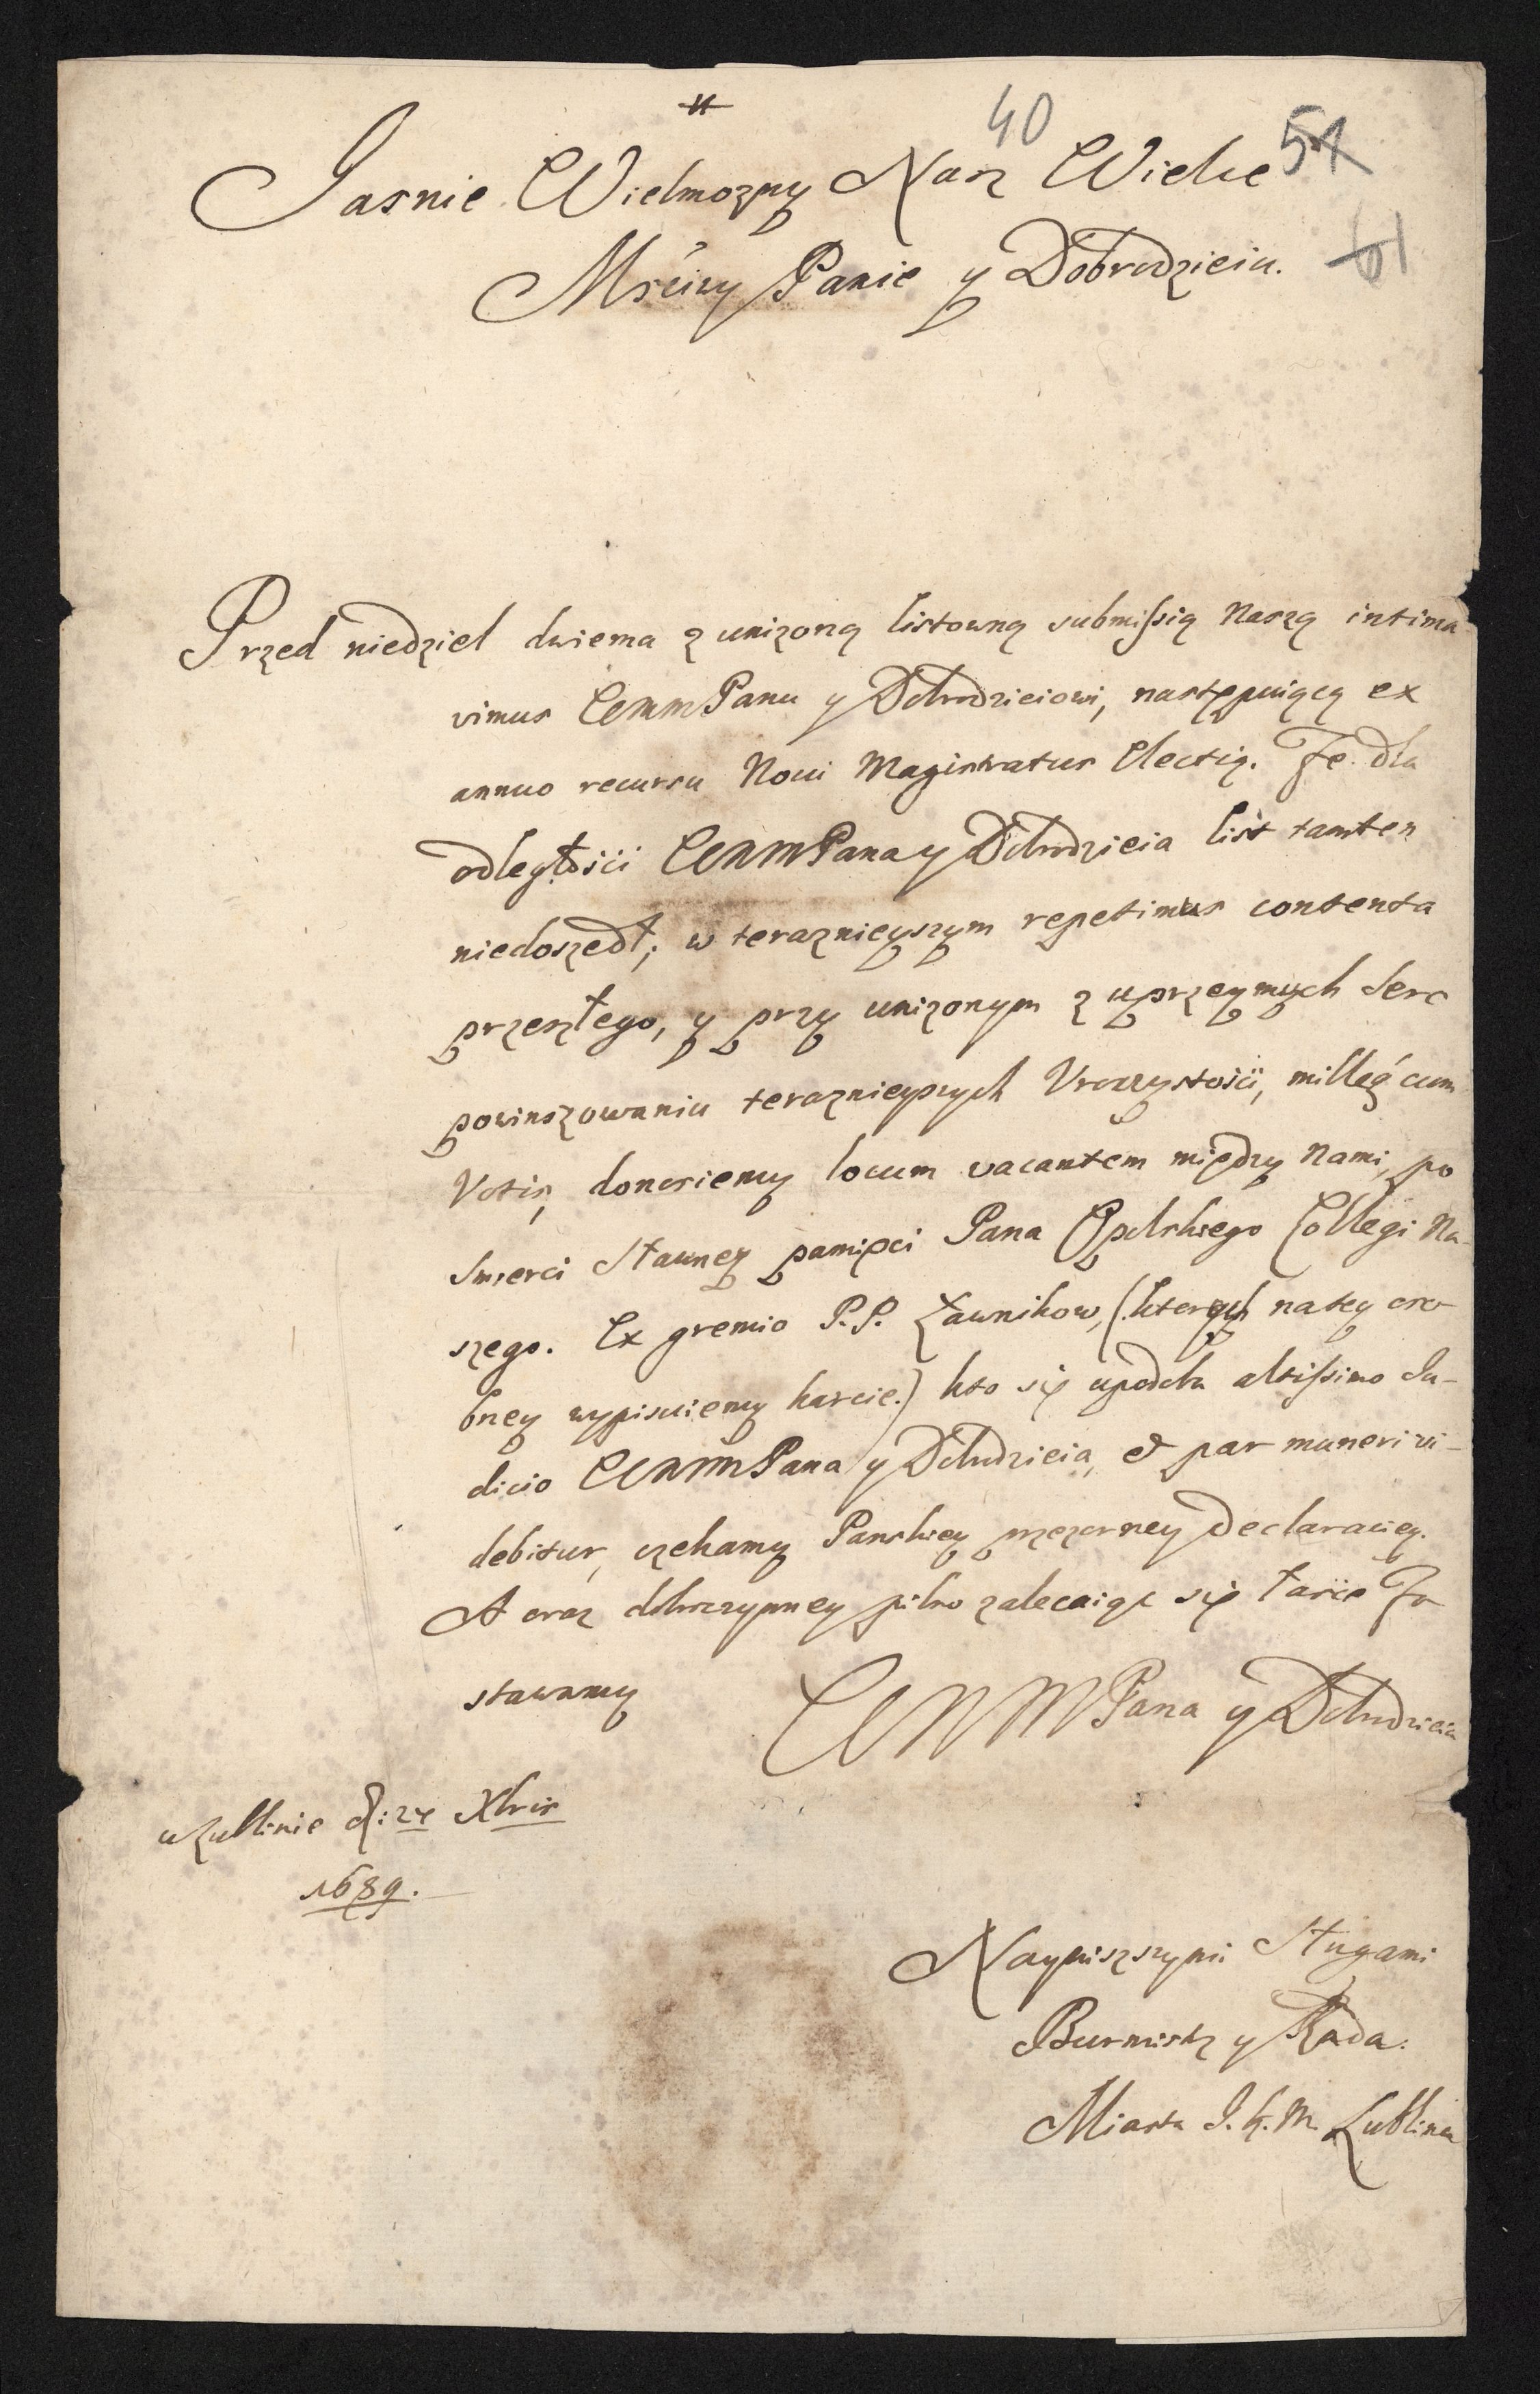 40
54
61
Jasnie Wielmozny Nasz Wielce
Msciwy Panie y Dobrodzieiu.
Przed niedziel dwiema z unizoną listowną submissią Naszą intima-
vimus WMM Panu y Dobrodzieiowi, następuiącą ex
annuo recursu Noui Magistratus Electią. Że dla
odległości WNM Pana y Dobrodzieia list tamten
niedoszedł; w teraznieyszym repetimus contenta
przeszłego, y przy unizonym z uprzeymych Serc
powinszowaniu teraznieyszych Vroczystości, milleq́ cum
Votis, donosiemy locum vacantem między Nami, po
Smierci Sławney pamięci Pana Opolskiego Collegi Na-
szego. Ex gremio P.P. Ławnikow, (ktorych na tey oso-
bney wypisuiemy karcie.) kto się upodoba altissimo Iu-
dicio WNM Pana y Dobrodzieia, et par muneri vi-
debitur, czekamy Panskiey Declaraciey.
A oraz dobroczynney pilno zalecaiąc się łasce Zo
stawamy
WNM Pana y Dobrodzieia
w Lublinie d: 24 Xbris
1689.
Nayniszszymi Sługami
Burmistrz y Rada
Miasta J. K. M. Lublina